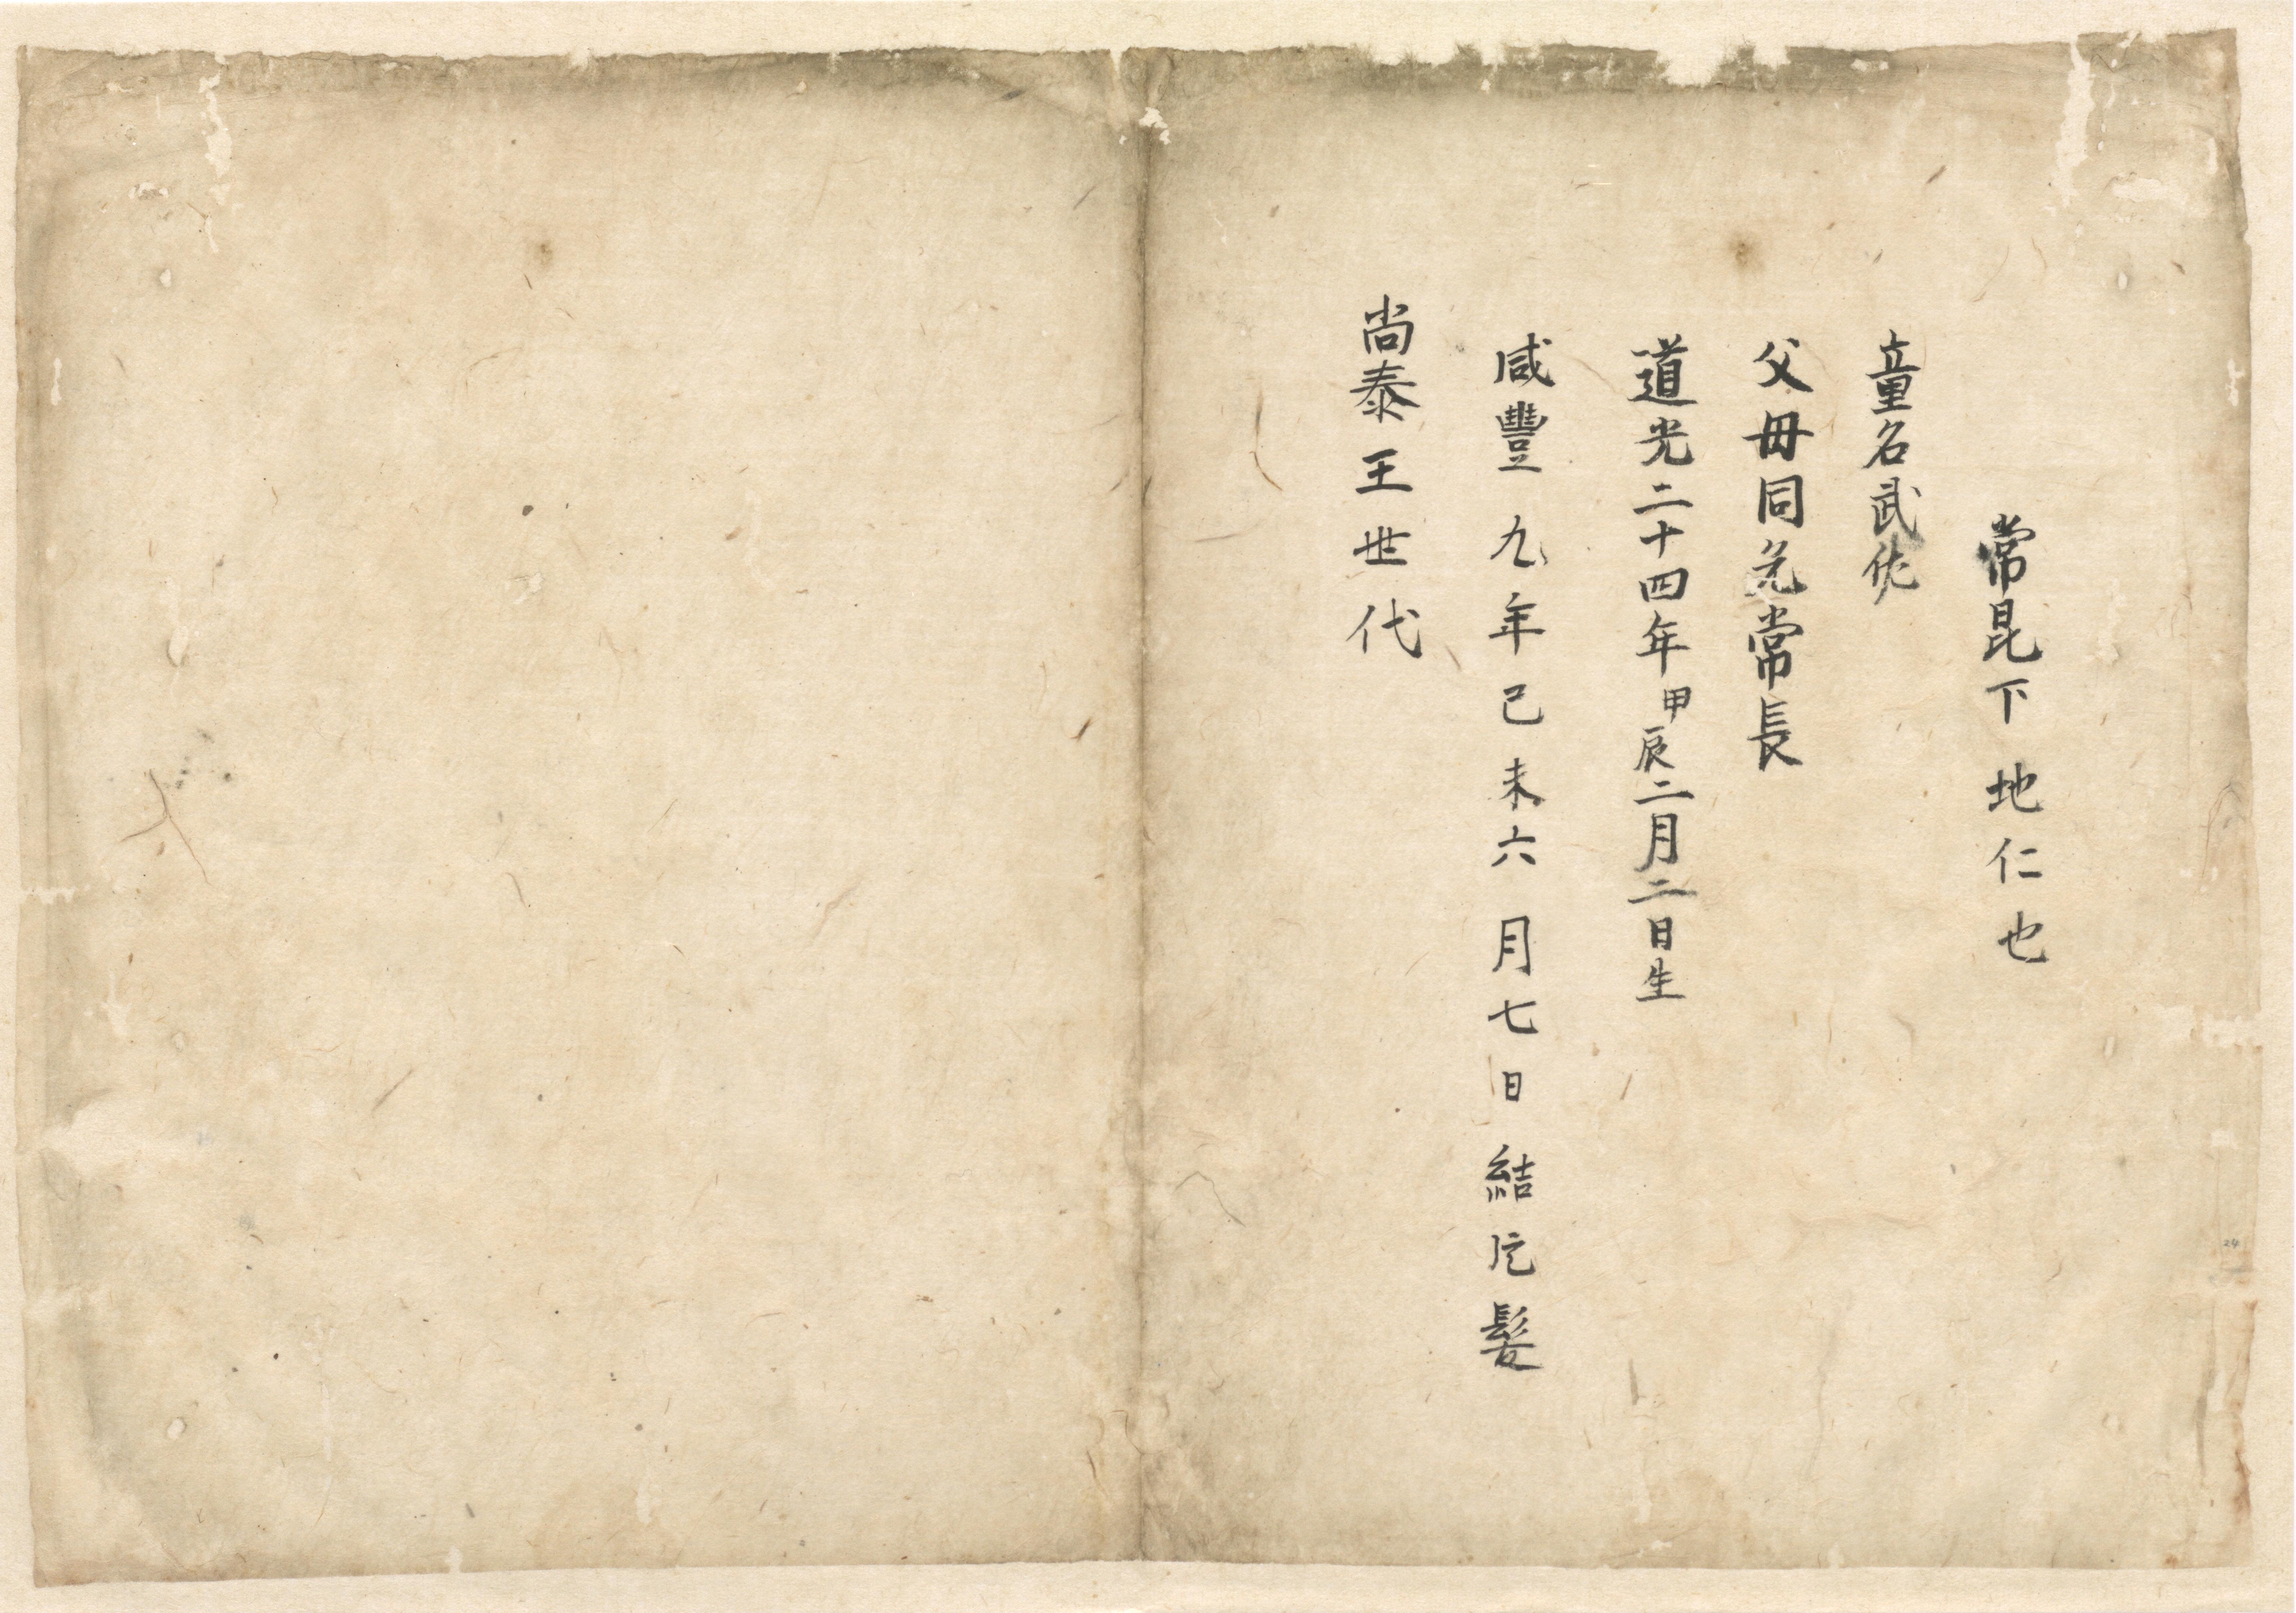 常昆下地仁也
童名武佐
父毋同兄常長
道光二十四年甲辰二月二日生
咸豐九年己未六月七日結片髪
尚泰王世代
24